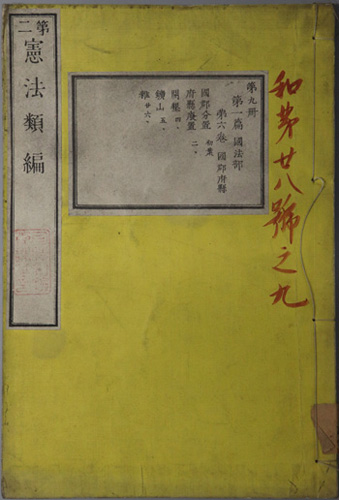 和第廿八號之九
第九冊
第一篇 國法部
第六卷 國郡府縣
國郡分置 初葉
府縣廢置 二、
開墾 四、
鑛山 五、
雜 廿六、
第二 憲法類編